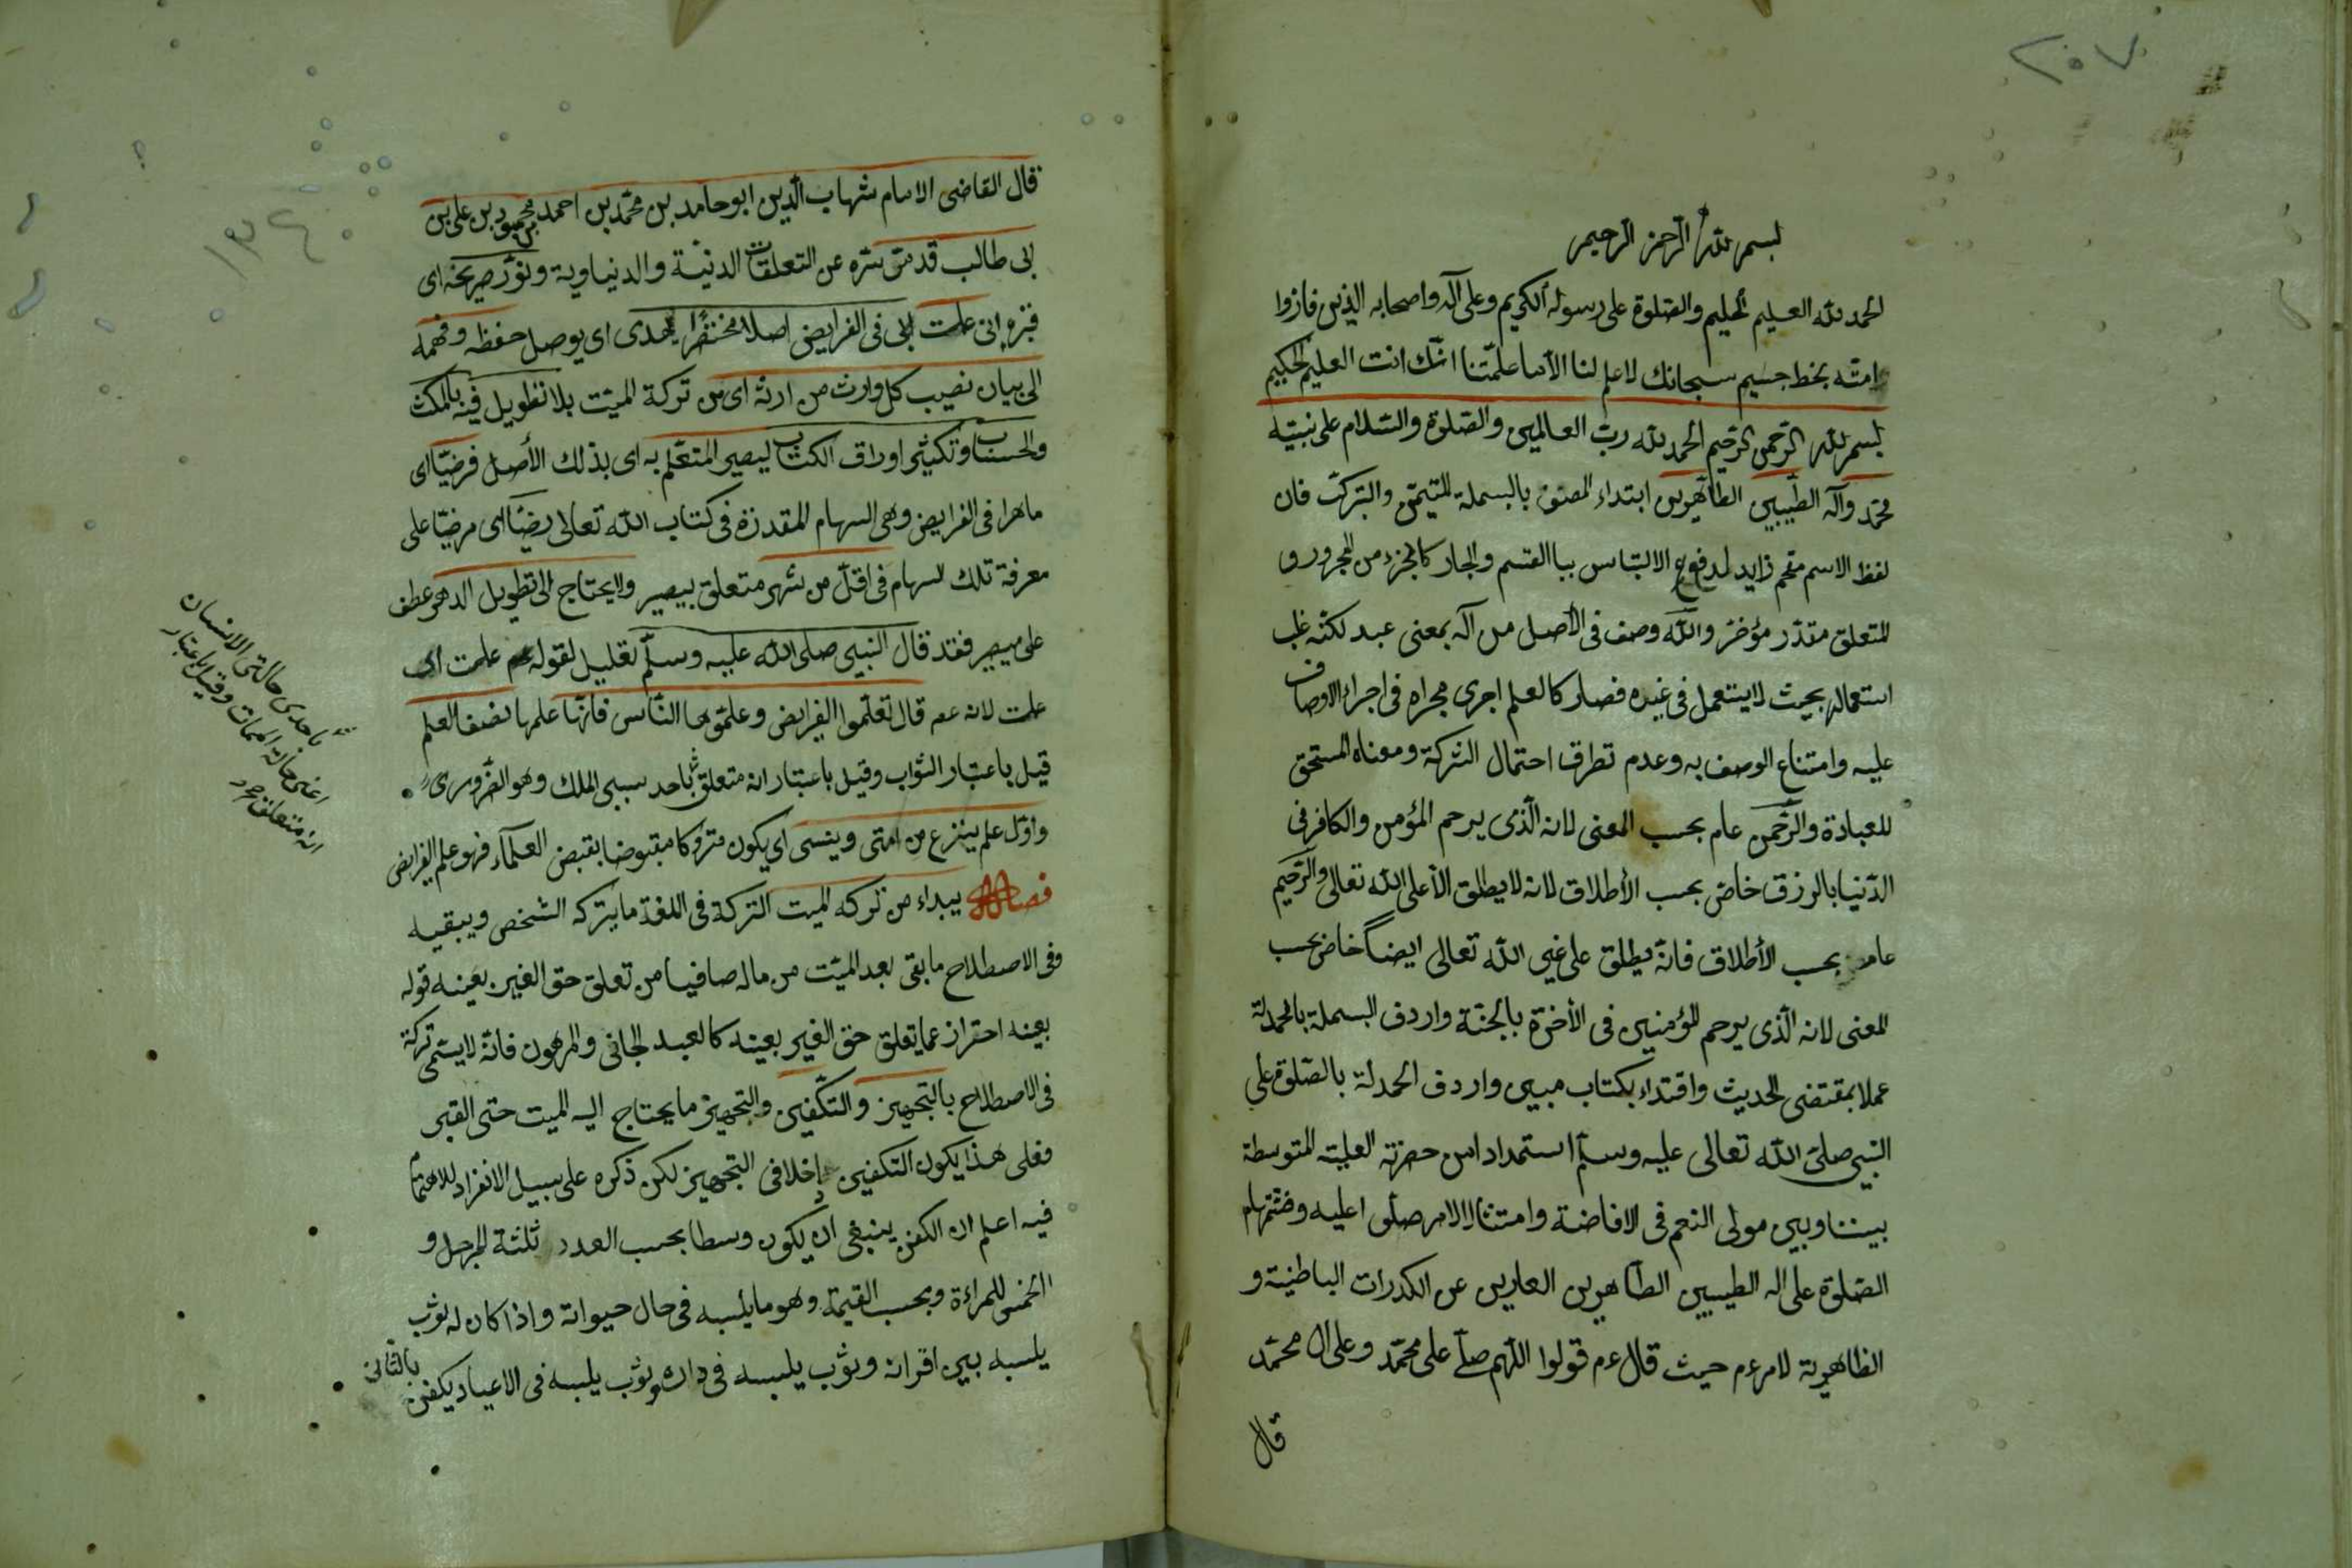 ٢٠٧
بسم الله الرحمن الرحيم
الحمد لله العليم الحليم والصلوة على رسوله الكريم وعلى آله واصحابه الذين فازوا
امته بخط جسيم سبحانك لا علم لنا الا ما علمتنا انك انت العليم الحكيم
بسم الله الرحمن الرحيم الحمد لله رب العالمين والصلوة والسلام على نبيه
محمد وآله الطيبين الطاهرين ابتداء المصنف بالبسملة للتيمن والتبرك فان
لفظ الاسم مقحم زايد لدفع الالتباس بباالقسم والجار كالجزء من المجرور و
المتعلق مقدر مؤخر والله وصف في الأصل من أله بمعنى عبد لكنه غلب
استعماله بحيث لا يستعمل في غيره فصار كالعلم اجرى مجراه في اجراء الاوصاف
عليه وامتناع الوصف به وعدم تطرق احتمال الشركة ومعناه المستحق
للعبادة والرحمن عام بحسب المعنى لانه الذى يرحم المؤمن والكافر في
الدنيا بالرزق خاص بحسب الأطلاق لانه لا يطلق الا على الله تعالى والرحيم
عام بحسب الأطلاق فانه يطلق على غير الله تعالى ايضا خاص بحسب
المعنى لانه الذى يرحم المؤمنين في الأخرة بالجنة واردف البسملة بالحمدلة
عملا بمقتضى الحديث واقتداء بكتاب مبين واردف الحمدلة بالصلوة على
النبي صلى الله تعالى عليه وسلم استمدادا من حضرته العلية المتوسطة
بيننا وبين مولى النعم في الافاضة وامتثالا لامر صلوا عليه وضمنها
الصلوة على اله الطيبين الطاهرين العارين عن الكدرات الباطنية و
الظاهرية لامرءم حيث قال ءم قولوا اللهم صل على محمد وعلى ال محمد
قال
١٣٤
قال القاضى الامام شهاب الدين ابو حامد بن محمد بن احمد بن محمود بن على بن
ابى طالب قدس سره عن التعلقات الدنية والدنياوية ونور ضريحه اى
قبره انى علمت لابنى في الفرايض اصلا مختصرا يهدى اى يوصل حفظه وفهمه
الى بيان نصيب كل وارث من ارثه اى من تركة الميت بلا تطويل فيه بالمكث
والحساب وتكثير اوراق الكتاب ليصير المتعلم به اى بذلك الأصل فرضيا اى
ماهرا في الفرايض وهى السهام المقدرة في كتاب الله تعالى رضيا اى مرضيا على
معرفة تلك السهام في اقل من شهر متعلق بيصير ولا يحتاج الى تطويل الدهر عطف
على يصير فقد قال النبي صلى الله عليه وسلم تعليل لقوله علمت اى
علمت لانه عم قال تعلموا الفرايض وعلموها الناس فانها علمها نصف العلم
قيل باعتبار الثواب وقيل باعتبار انه متعلق باحد سببى الملك وهو الضرورى
واول علم ينزع من امتى وينسى اى يكون متروكا مقبوضا بقبض العلماء فهو علم الفرايض
فصل يبداء من تركه الميت التركة في اللغة ما يتركه الشخص ويبقيه
وفي الاصطلاح ما بقى بعد الميت من ماله صافيا من تعلق حق الغير بعينه قوله
بعينه احتراز عما يتعلق حق الغير بعينه كالعبد الجانى والمرهون فانه لا يسمى تركة
في الاصطلاح بالتجهيز والتكفين والتجهيز ما يحتاج اليه الميت حتى القبر
فعلى هذا يكون التكفين داخلا في التجهيز لكن ذكره على سبيل الانفراد للاهتمام
فيه اعلم ان الكفن ينبغى ان يكون وسطا بحسب العدد ثلثة للرجل و
الخمس للمراءة وبحسب القيمة وهو ما يلبسه في حال حيواته واذا كان له ثوب
يلبسه بين اقرانه وثوب يلبسه في داره وثوب يلبسه في الاعياد يكفن بالثانى
باحدى حالتى الانسان
اعنى حالة الممات وقيل باعتبار
انه متعلق